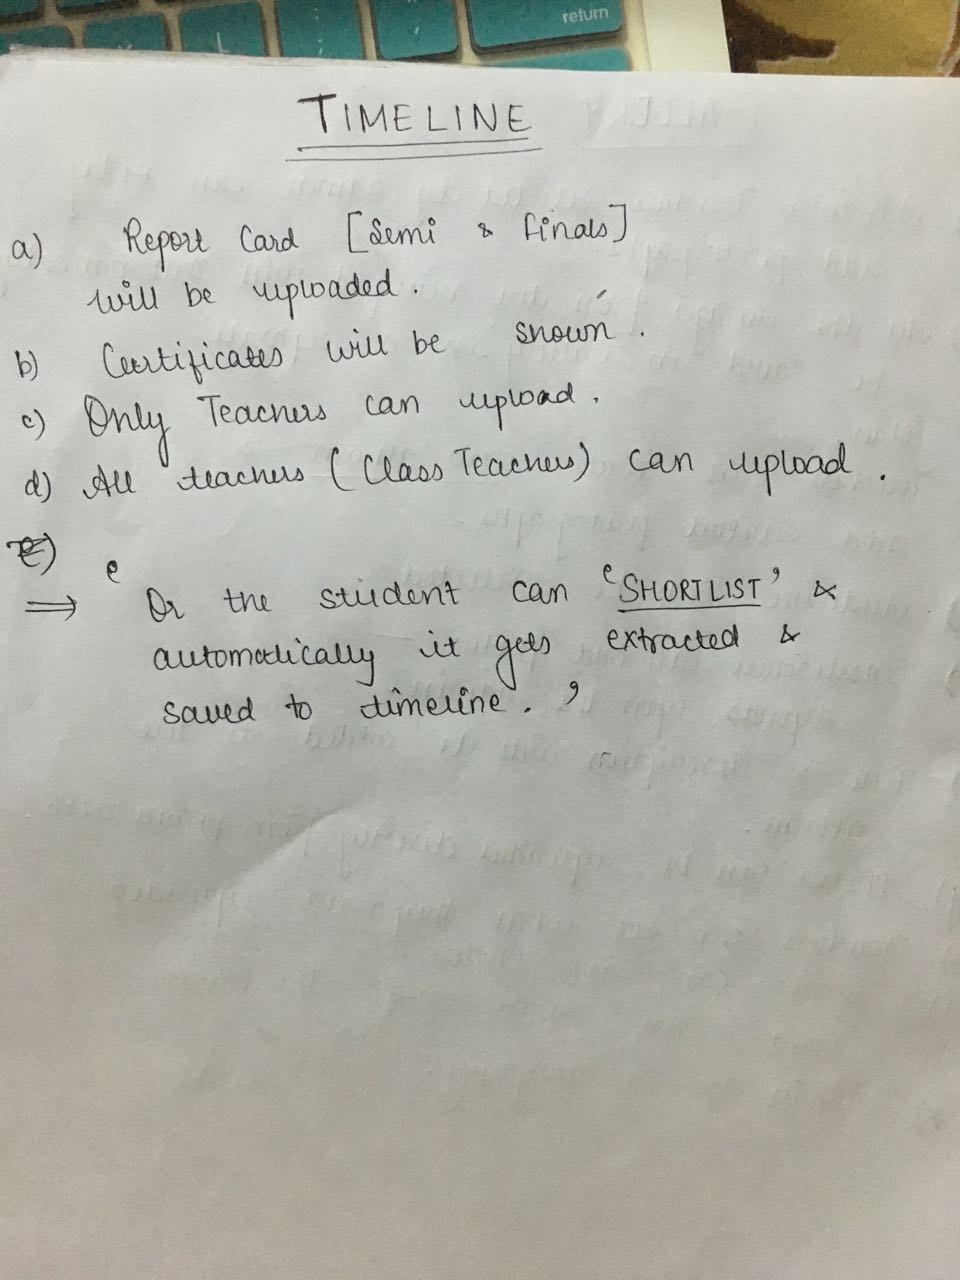 return
TIMELINE
a) Report Card [Semi & finals]
will be uploaded.
b) Certificates will be shown.
c) Only Teachers can upload.
d) All teachers (Class Teachers) can upload.
e)
⇒ ‘Or the student can ‘SHORTLIST’ &
automatically it gets extracted &
saved to timeline.’